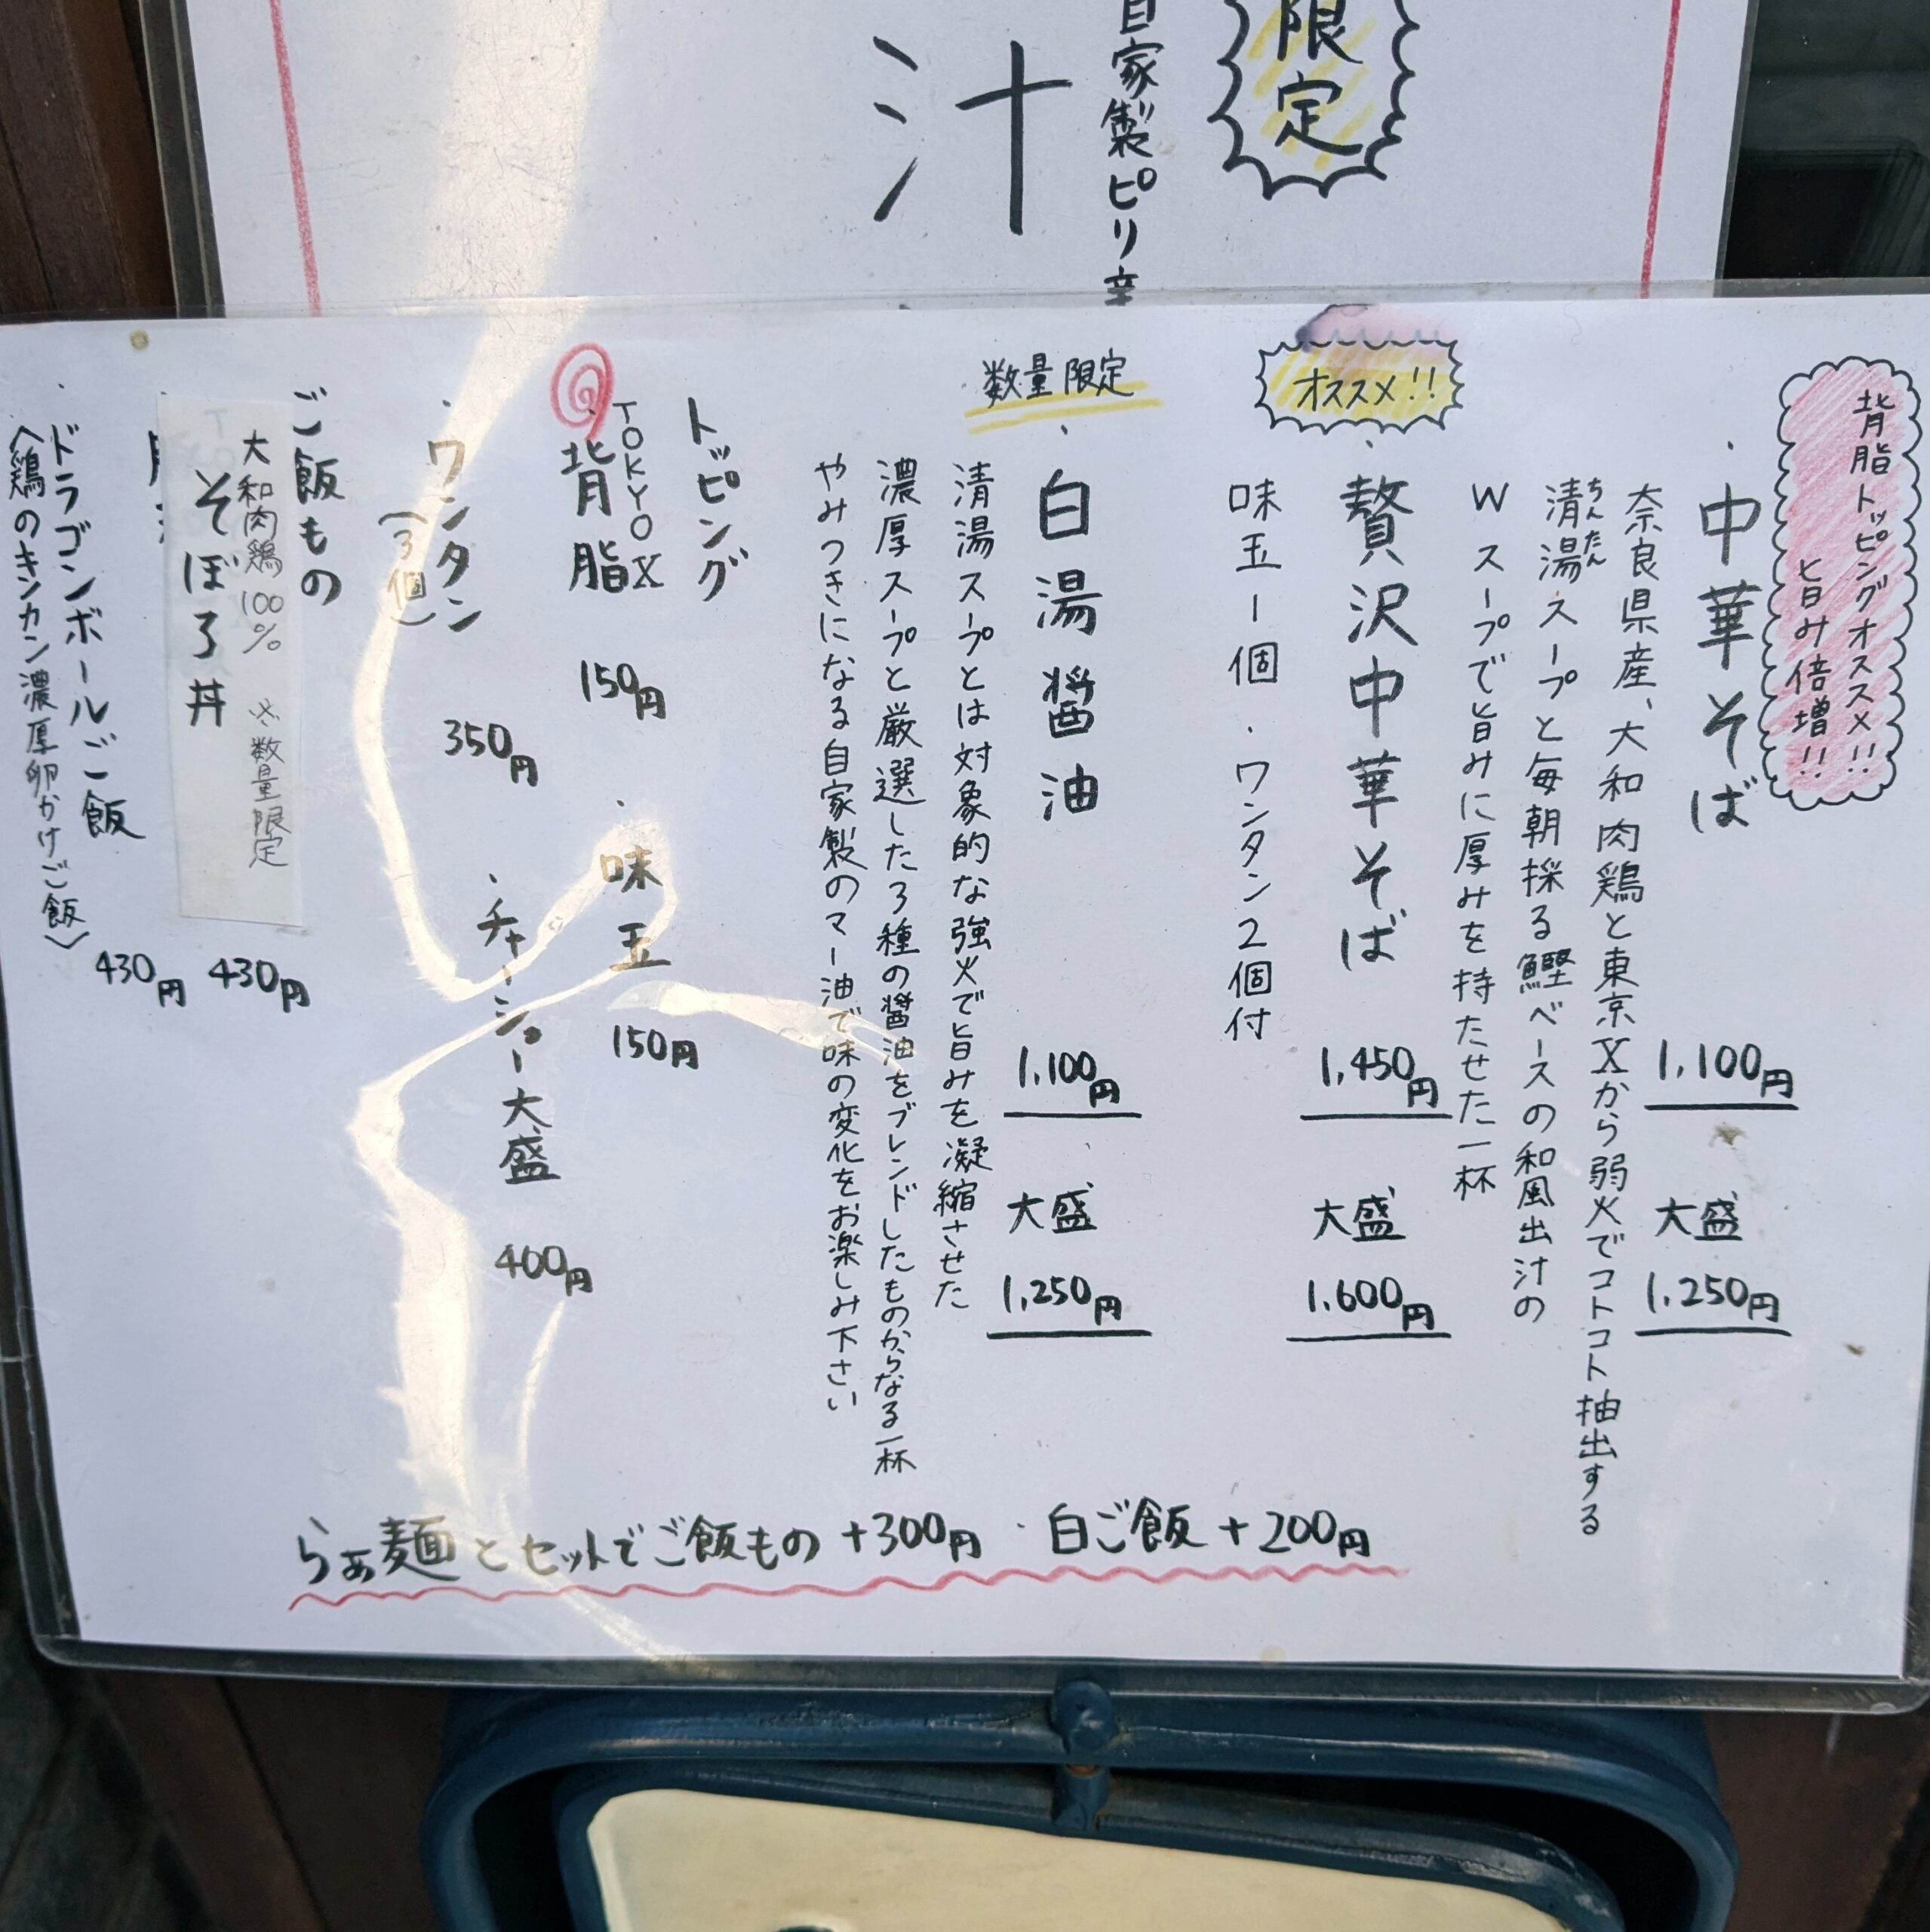 限定
自家製ピリ辛
汁
背脂トッピングオススメ!!
旨み倍増!!
・中華そば
1,100円
大盛
1,250円
奈良県産、大和肉鶏と東京Xから弱火でコトコト抽出する
清湯スープと毎朝採る鰹ベースの和風出汁の
ちんたん
Wスープで旨みに厚みを持たせた一杯
オススメ!!
・贅沢中華そば
1,450円
大盛
1,600円
味玉1個・ワンタン2個付
数量限定
・白湯醤油
1,100円
大盛
1,250円
清湯スープとは対象的な強火で旨みを凝縮させた
濃厚スープと厳選した3種の醤油をブレンドしたものからなる一杯
やみつきになる自家製のマー油で味の変化をお楽しみ下さい
トッピング
TOKYO X
・背脂
150円
・味玉
150円
・ワンタン
(3個)
350円
・チャーシュー大盛
400円
ご飯もの
大和肉鶏100% ※数量限定
そぼろ丼
430円
・ドラゴンボールご飯
430円
(鶏のキンカン濃厚卵かけご飯)
らぁ麺とセットでご飯もの+300円・白ご飯+200円